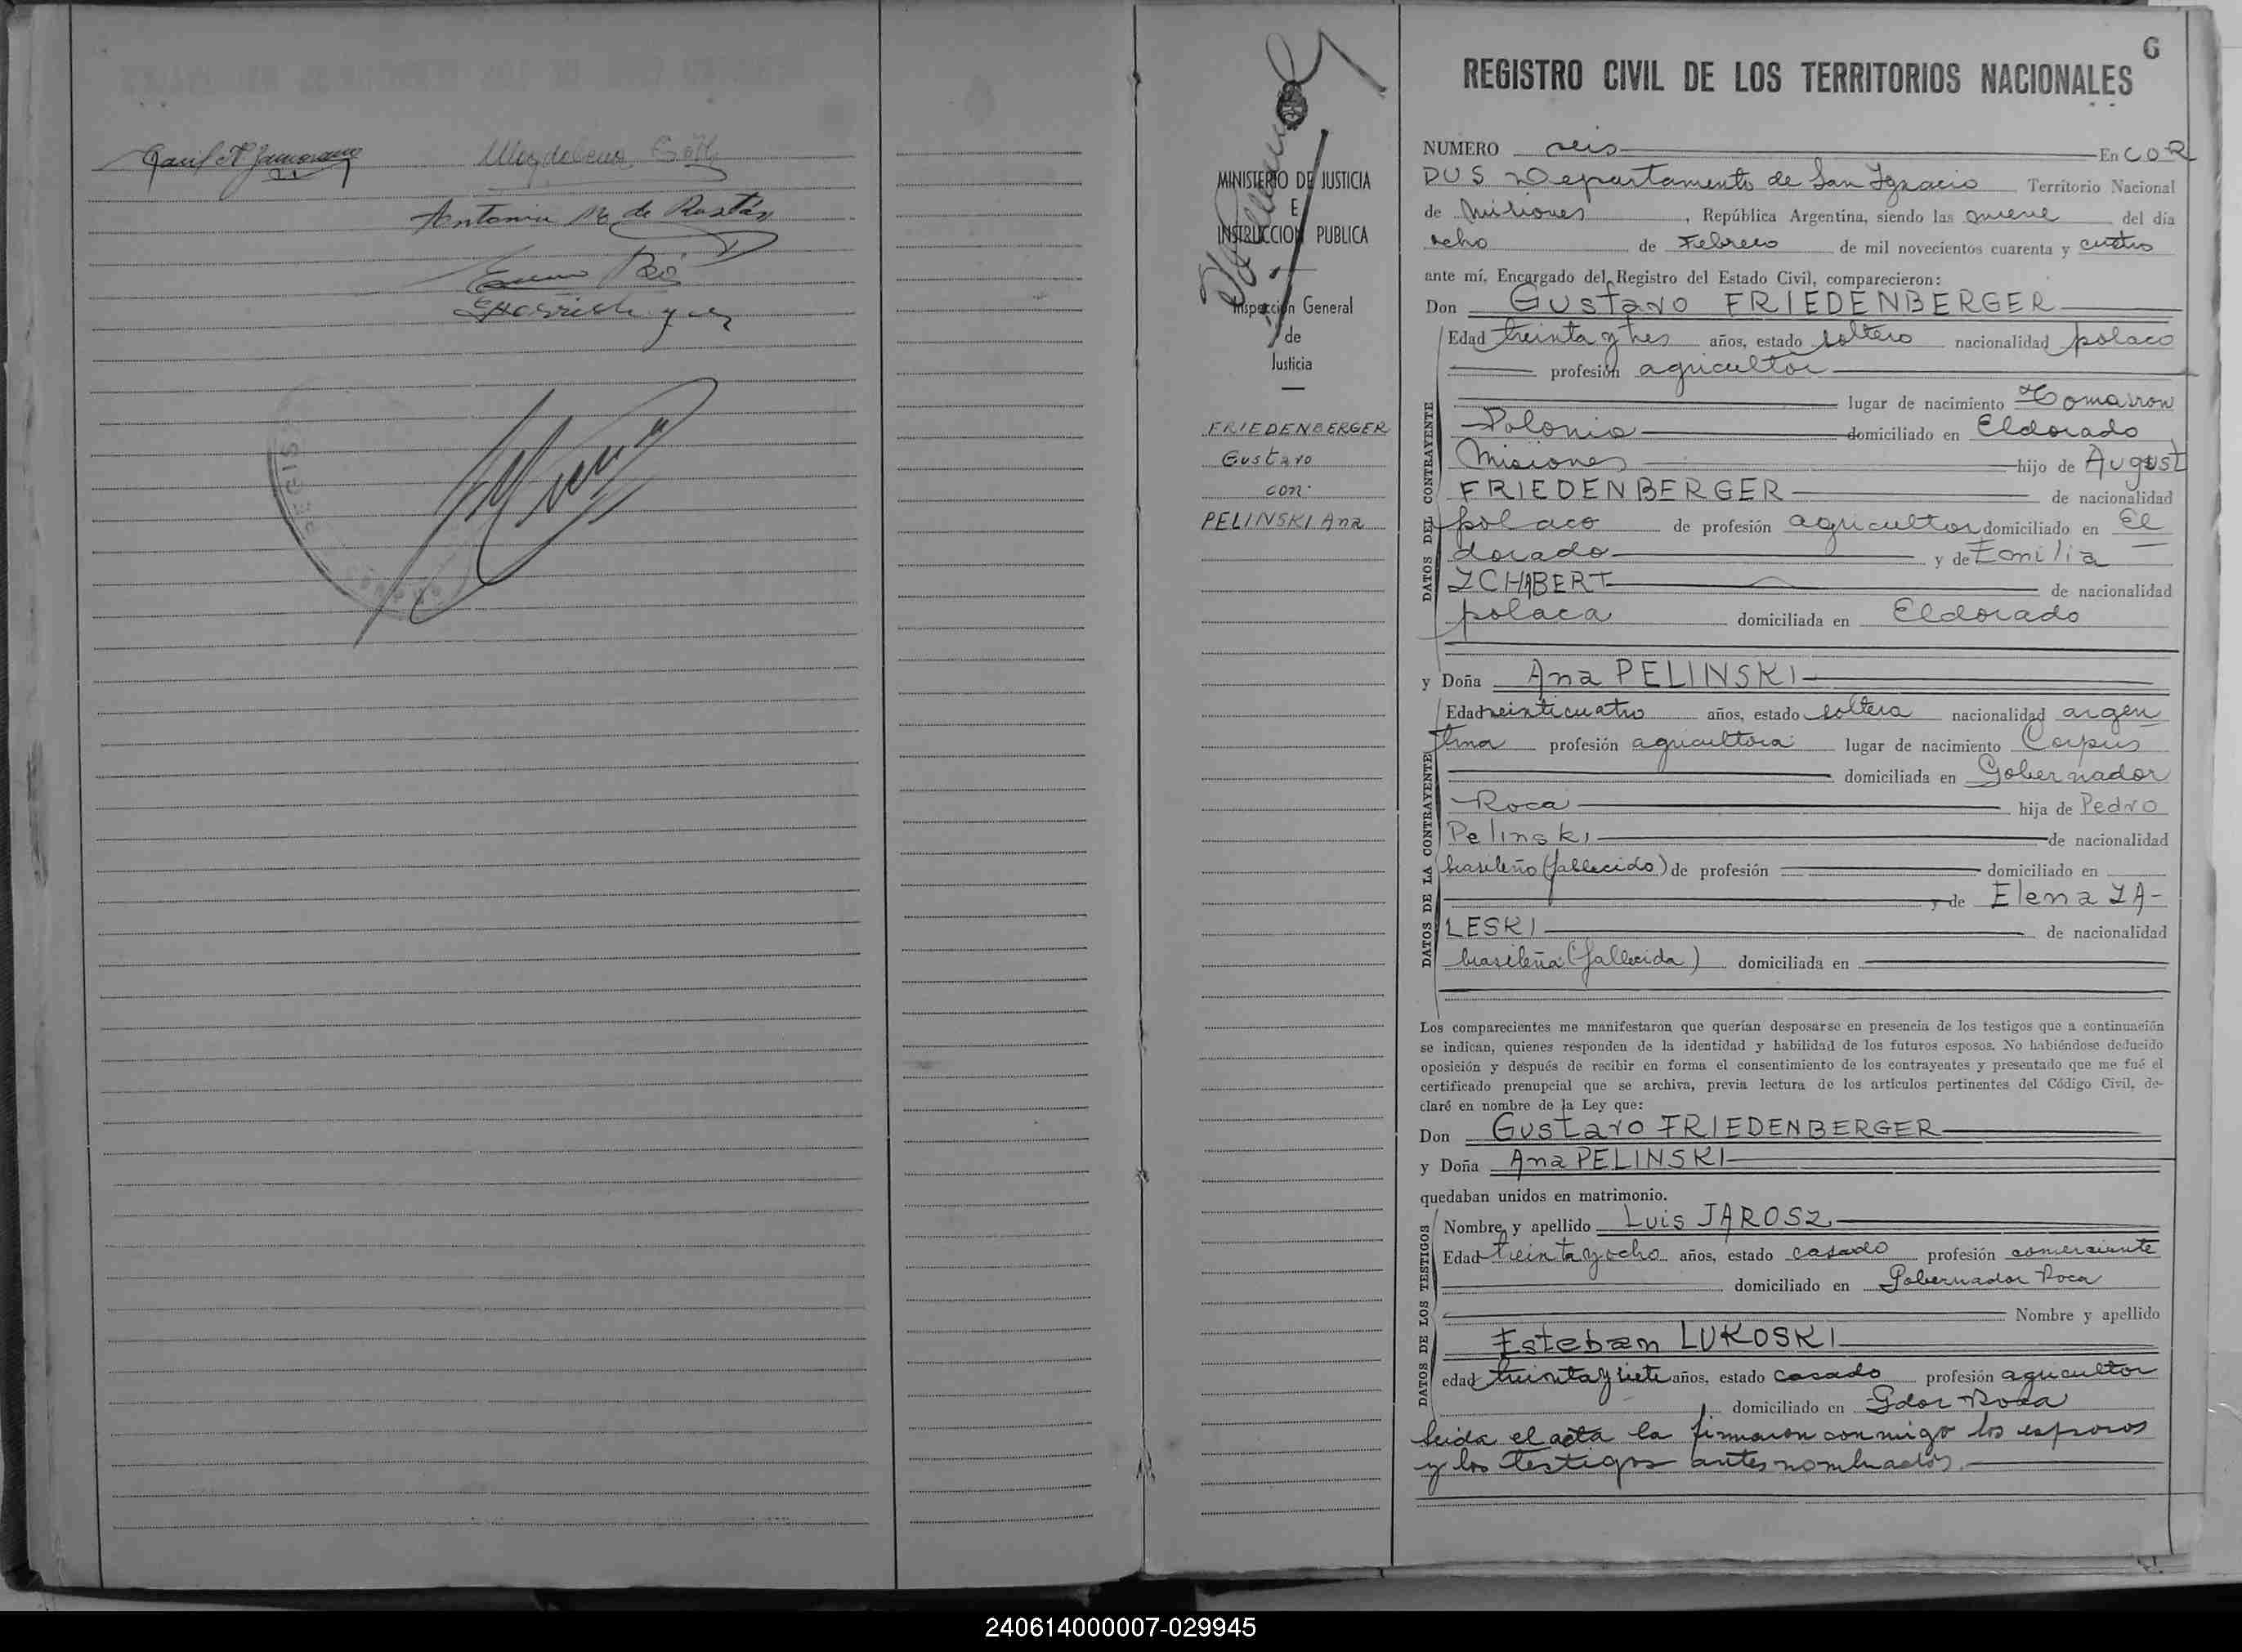 Magdalena
Antonia R. de Rostán
REGIS
6
REGISTRO CIVIL DE LOS TERRITORIOS NACIONALES
MINISTERIO DE JUSTICIA
E
INSTRUCCION PUBLICA
Inspección General
de
Justicia
FRIEDENBERGER
Gustavo
con
PELINSKI Ana
NUMERO seis En COR
PUS Departamento de San Ignacio Territorio Nacional
de Misiones, República Argentina, siendo las nueve del día
ocho de Febrero de mil novecientos cuarenta y cuatro
ante mí, Encargado del Registro del Estado Civil, comparecieron:
Don Gustavo FRIEDENBERGER
Edad treinta y tres años, estado soltero nacionalidad polaco
profesión agricultor
lugar de nacimiento Tomasrow
Polonia domiciliado en Eldorado
Misiones hijo de August
FRIEDENBERGER de nacionalidad
polaco de profesión agricultor domiciliado en El
dorado y de Emilia
ZCHABERT de nacionalidad
polaca domiciliada en Eldorado
DATOS DEL CONTRAYENTE
y Doña Ana PELINSKI
Edad veinticuatro años, estado soltera nacionalidad argen
tina profesión agricultora lugar de nacimiento Corpus
domiciliada en Gobernador
Roca hija de Pedro
Pelinski de nacionalidad
brasileño (fallecido) de profesión domiciliado en
y de Elena ZA-
LESKI de nacionalidad
brasileña (fallecida) domiciliada en
DATOS DE LA CONTRAYENTE
Los comparecientes me manifestaron que querían desposarse en presencia de los testigos que a continuación
se indican, quienes responden de la identidad y habilidad de los futuros esposos. No habiéndose deducido
oposición y después de recibir en forma el consentimiento de los contrayentes y presentado que me fué el
certificado prenupcial que se archiva, previa lectura de los artículos pertinentes del Código Civil, de-
claré en nombre de la Ley que:
Don Gustavo FRIEDENBERGER
y Doña Ana PELINSKI
quedaban unidos en matrimonio.
Nombre y apellido Luis JAROSZ
Edad treinta y ocho años, estado casado profesión comerciante
domiciliado en Gobernador Roca
Nombre y apellido
Esteban LUKOSKI
edad treinta y siete años, estado casado profesión agricultor
domiciliado en Gdor Roca
DATOS DE LOS TESTIGOS
Leida el acta la firmaron conmigo los esposos
y los testigos antes nombrados.
240614000007-029945